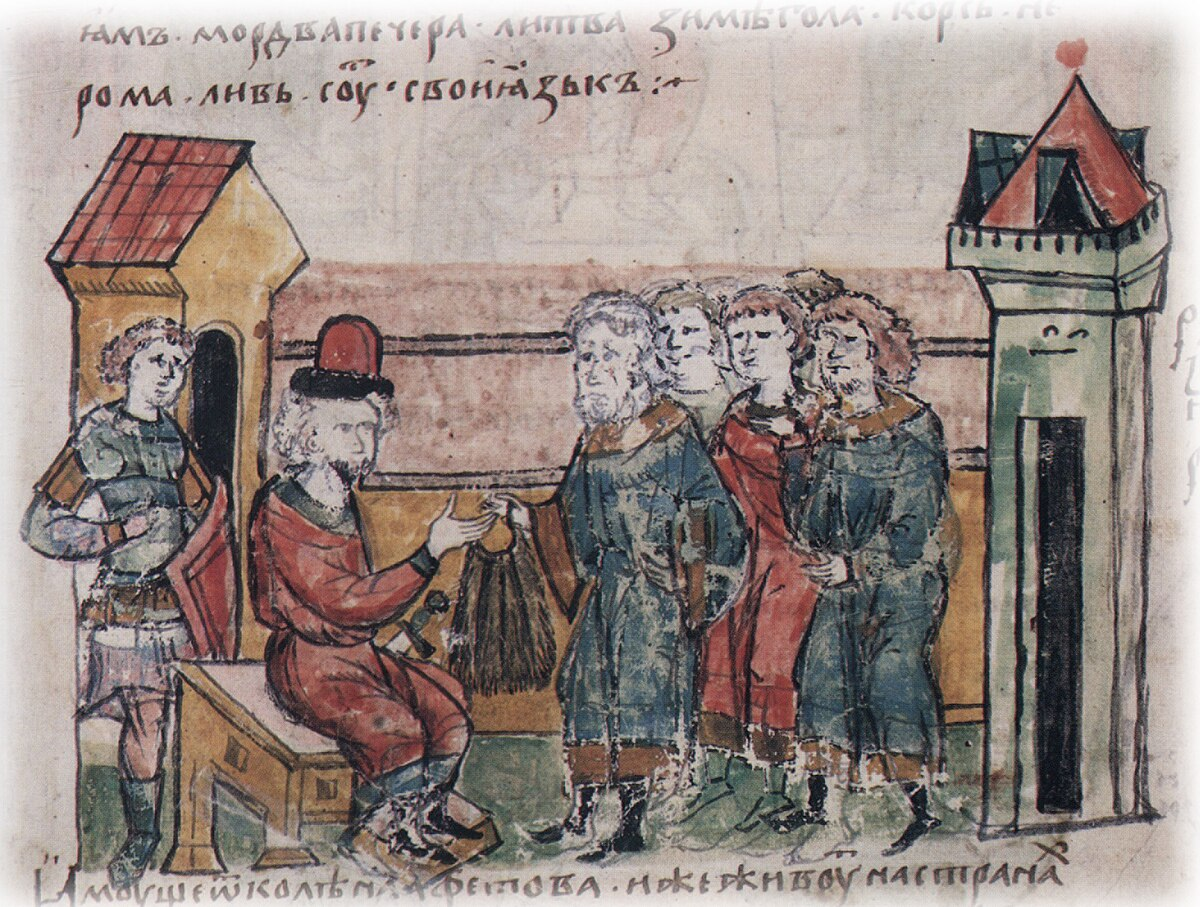 ꙗмъ · мордва печера · литва зимѣгола · корсь · не
рома · ливь · сꙋ҃ть · свои ꙗзыкъ :·
моуще ѿ колѣна афетова · иже живоу на странахъ